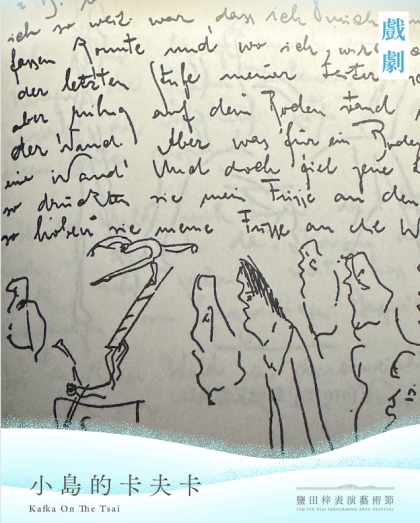 戲劇
ich so weit war, dass ich mich
fassen konnte und wo ich
der letzten Stufe meiner Leiter
aber ruhig auf dem Boden stand
der Wand. Aber was für ein Boden
eine Wand! Und doch fiel jene
so drückten sie mein Füsse an den
so hoben sie meine Füsse an die
小島的卡夫卡
Kafka On The Tsai
鹽田梓表演藝術節
YIM TIN TSAI PERFORMING ARTS FESTIVAL